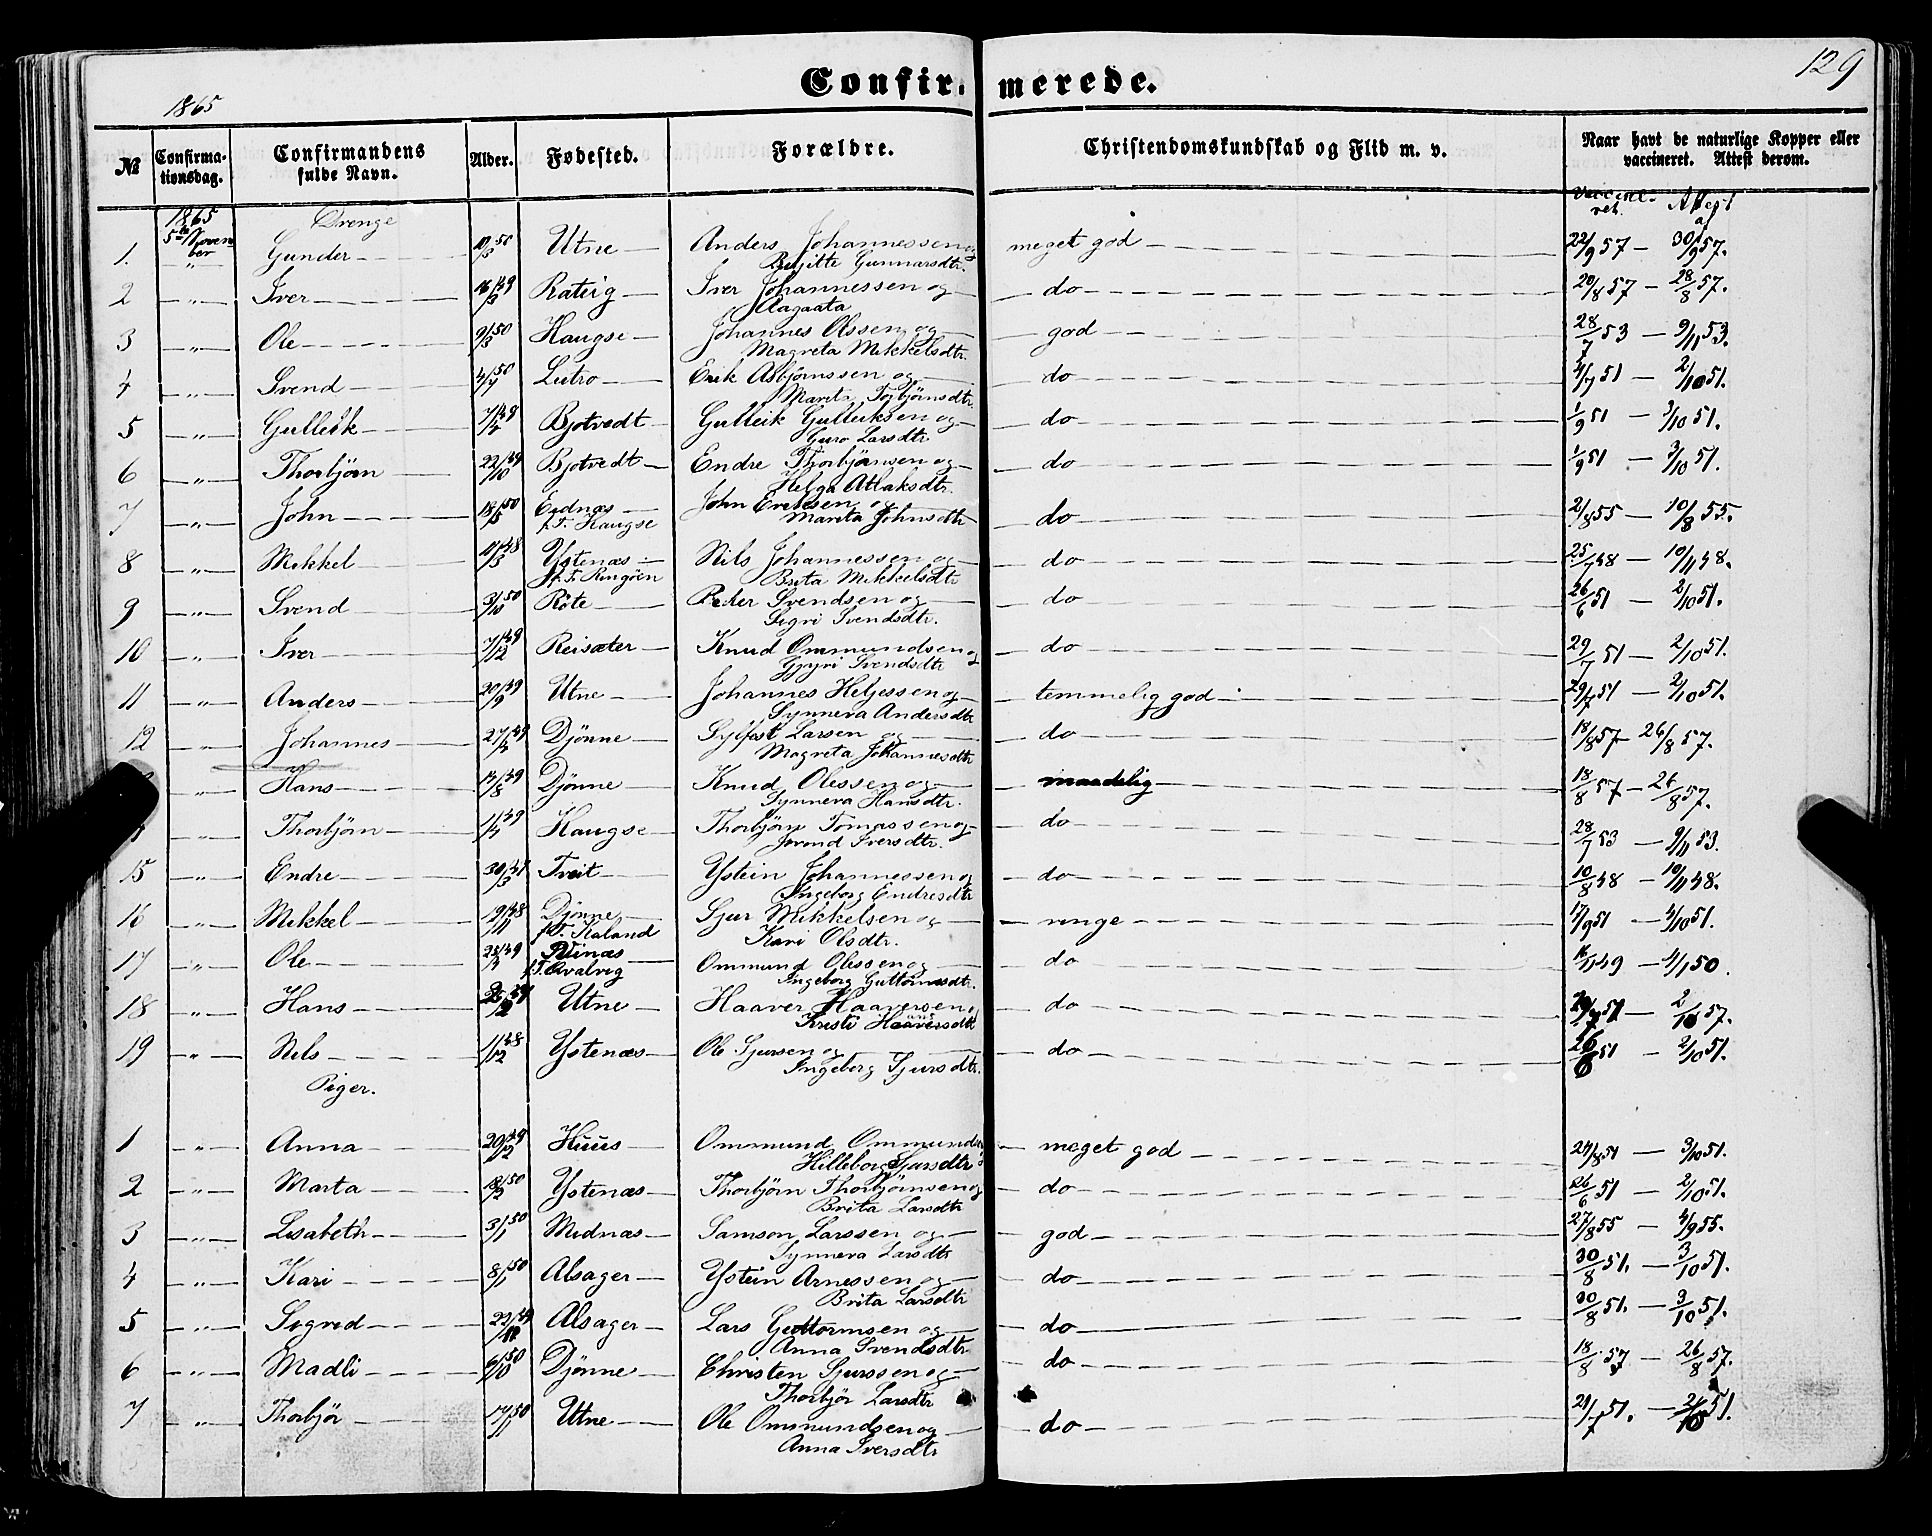 129
Confirmerede.
1865
№ Confirmationsdag. Confirmandens fulde Navn. Alder. Fødested. Forældre. Christendomskundskab og Flid m. v. Naar havt de naturlige Kopper eller vaccineret. Attest derom.
1865 Drenge Attest
5te Novem
ber
1. " Gunder 50 Utne Anders Johannessen og meget god 22/9 57 – 30/9 57.
Gunnarsdtr.
2 " Iver 49 Iver Johannessen og do 20/8 57 – 28/8 57.
Aagaata
3 " Ole 9/3 50 Haugse Johannes Olssen og god 28/7 53 – 9/11 53.
Magreta Mikkelsdtr.
4 " Svend 50 Lutro Erik Asbjørnssen og do 4/7 51 – 2/10 51.
Marita Torbjørnsdtr.
5 " Gulleik 49 Bjotvedt Gulleik Gulleiksen og do 1/9 51 – 3/10 51.
Guro Larsdtr
6 " Thorbjørn 22/10 49 Bjotvedt Endre Thorbjørnsen og do 1/9 51 – 3/10 51.
Helga Atlaksdtr.
7 " John 18/5 50 Eidnæs John Eriksen og do 2/8 55 – 10/8 55.
f. T. Haugse Marita Johnsdtr
8 " Mikkel 48 Ystenæs Nils Johannessen og do 25/7 48 – 10/11 48.
f. T. Ringøen Brita Mikkelsdtr
9 " Svend 3/10 50 Røte Peder Svendsen og do 26/6 51 – 2/10 51.
Sigri Svendsdtr.
10 " Iver 7/12 49 Reisæter Knud Ommundsen og do 29/7 51 – 2/10 51.
Svendsdtr
11 " Anders 20/9 49 Utne Johannes Heljessen og temmelig god 29/7 51 – 2/10 51.
Synneva Andersdtr
12 " Johannes 49 Djønne Sylfest Larsen og do 18/8 57 – 26/8 57.
Magreta Johannesdtr
" Hans 49 Djønne Knud Olessen og maadelig 18/8 57 – 26/8 57.
Synneva Hansdtr.
" Thorbjørn 49 Haugse Thorbjørn Tomassen og do 28/7 53 – 9/11 53.
Iversdtr.
15 " Endre Tveit Ystein Johannessen og do 10/8 48 – 10/11 48.
Ingeborg Endresdtr
16 " Mikkel 19/11 48 Djønne Sjur Mikkelsen og ringe 17/9 51 – 4/10 51.
f. T. Kaland Kari Olsdtr.
17 " Ole 49 Ommund Olessen og do 49 – 4/1 50.
f. T. Ingeborg Guttormsdtr.
18 " Hans Utne Haaver Haaversen og do
Kristi
19 " Nils 11/12 48 Ystenæs Ole Sjursen og do 26/6 51 – 2/10 51.
Ingeborg Sjursdtr.
Piger.
1 " Anna 49 Huus Ommund Ommunds meget god 51 – 3/10 51.
Hilleborg Sjursdtr
2 " Marta 50 Ystenæs Thorbjørn Thorbjørnsen og do 26/6 51 – 2/10 51.
Brita Larsdtr
3 " Lisabeth 3/1 50 Midnæs Samson Larssen og god 27/8 55 – 4/9 55.
Synneva Larsdtr
4 " Kari 8/1 50 Alsager Ystein Arnessen og do 30/8 51. – 3/10 51.
Brita Larsdtr
5 " Sigrid Alsager Lars Guttormsen og do 30/8 51. – 3/10 51.
Anna Svendsdtr
6 " Madli 6/10 50 Djønne Christen Sjurssen og do 18/8 57 – 26/8 57.
Thorbjør Larsdtr
7 " Thorbjør 50 Utne Ole Ommundsen og do 51. – 2/10 51.
Anna Iversdtr